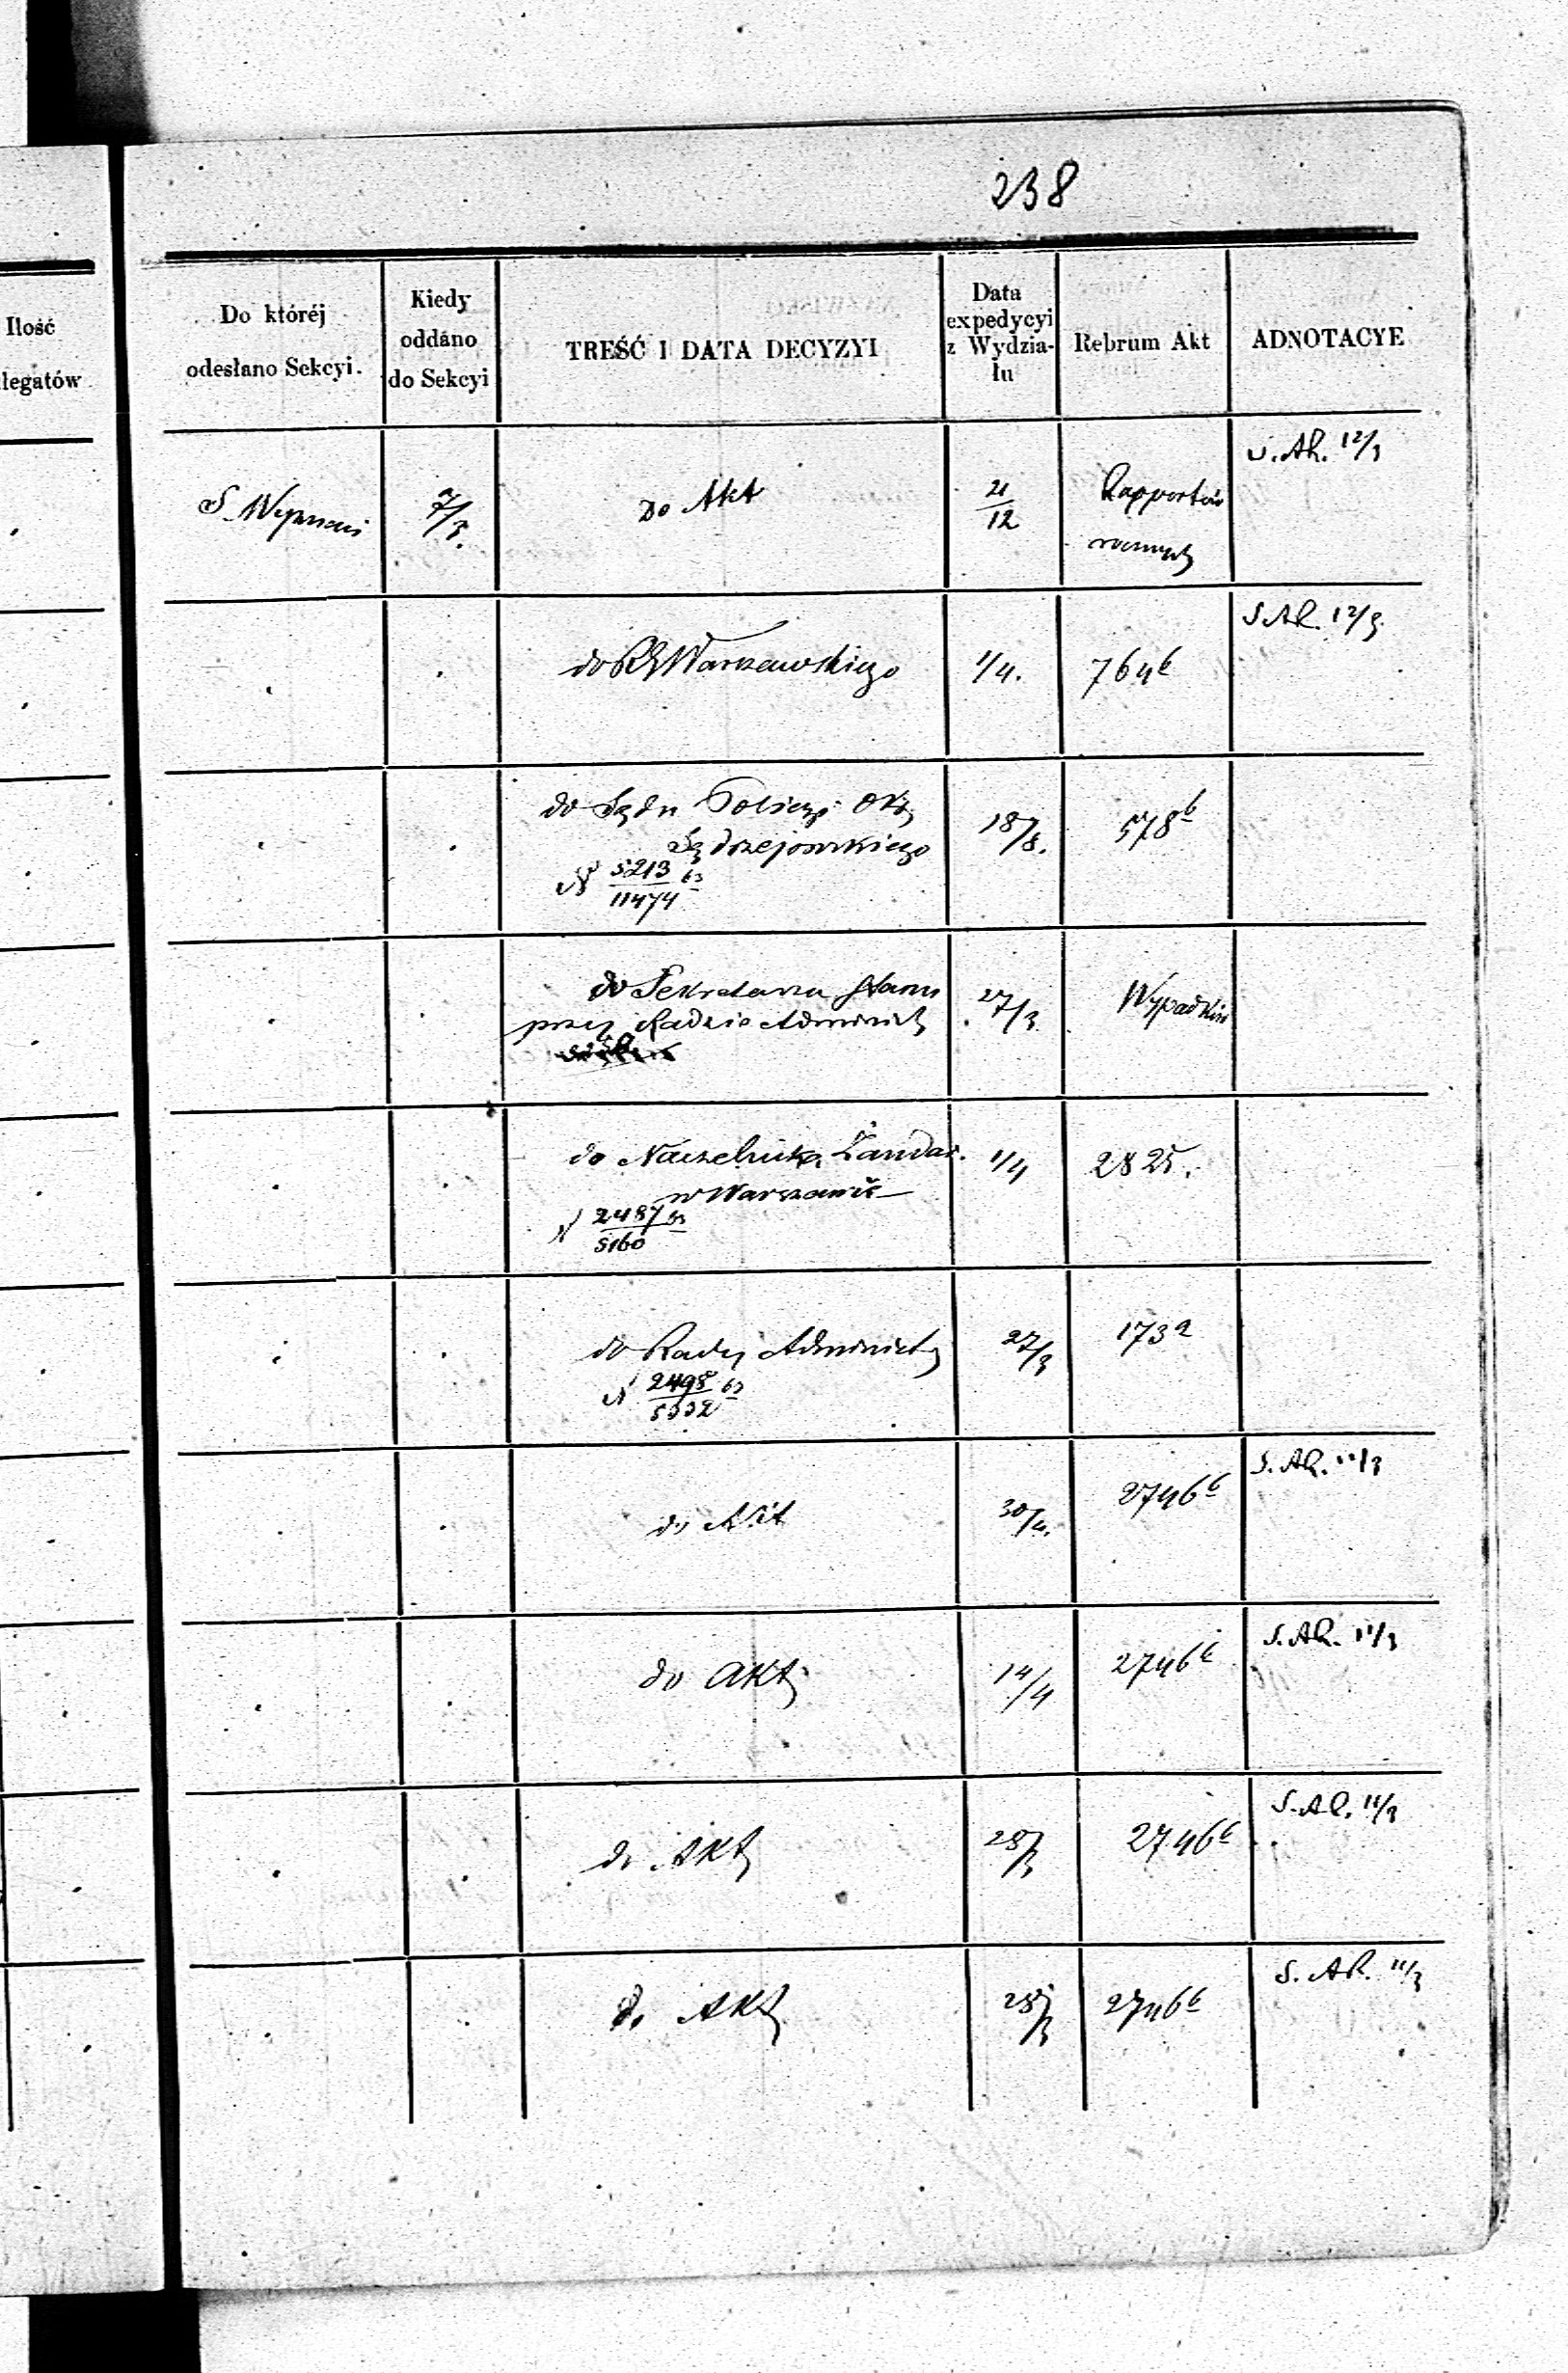 238
Ilość
legatów
Do któréj
odesłano Sekcyi.
Kiedy
oddano
do Sekcyi
TREŚĆ I DATA DECYZYI
Data
expedycyi
z Wydzia-
łu
Rebrum Akt
ADNOTACYE
S.
7/3.
Do Akt
21/12
Rapportów
S. AR. 12/3
do Warszawskiego
1/4.
764b
S AR. 12/3.
do Sądu Policyi
Jędrzejowskiego
N 5213/11474 63
18/8.
578b
do Sekretarza Stanu
przy Radzie Administ
27/3
Wypadków
do Naczelnika Żandar.
w Warszawie
N 2487/5160 63
1/4
2825.
do Rady Administ
N 2498/5332 63
27/3
173a
do Akt
30/4.
2746b
S. AR. 11/3
do Akt
14/4
2746b
S. AR. 11/3
do Akt
28/3
2746b
S. AR. 11/3
do Akt
28/3
2746b
S. AR. 11/3